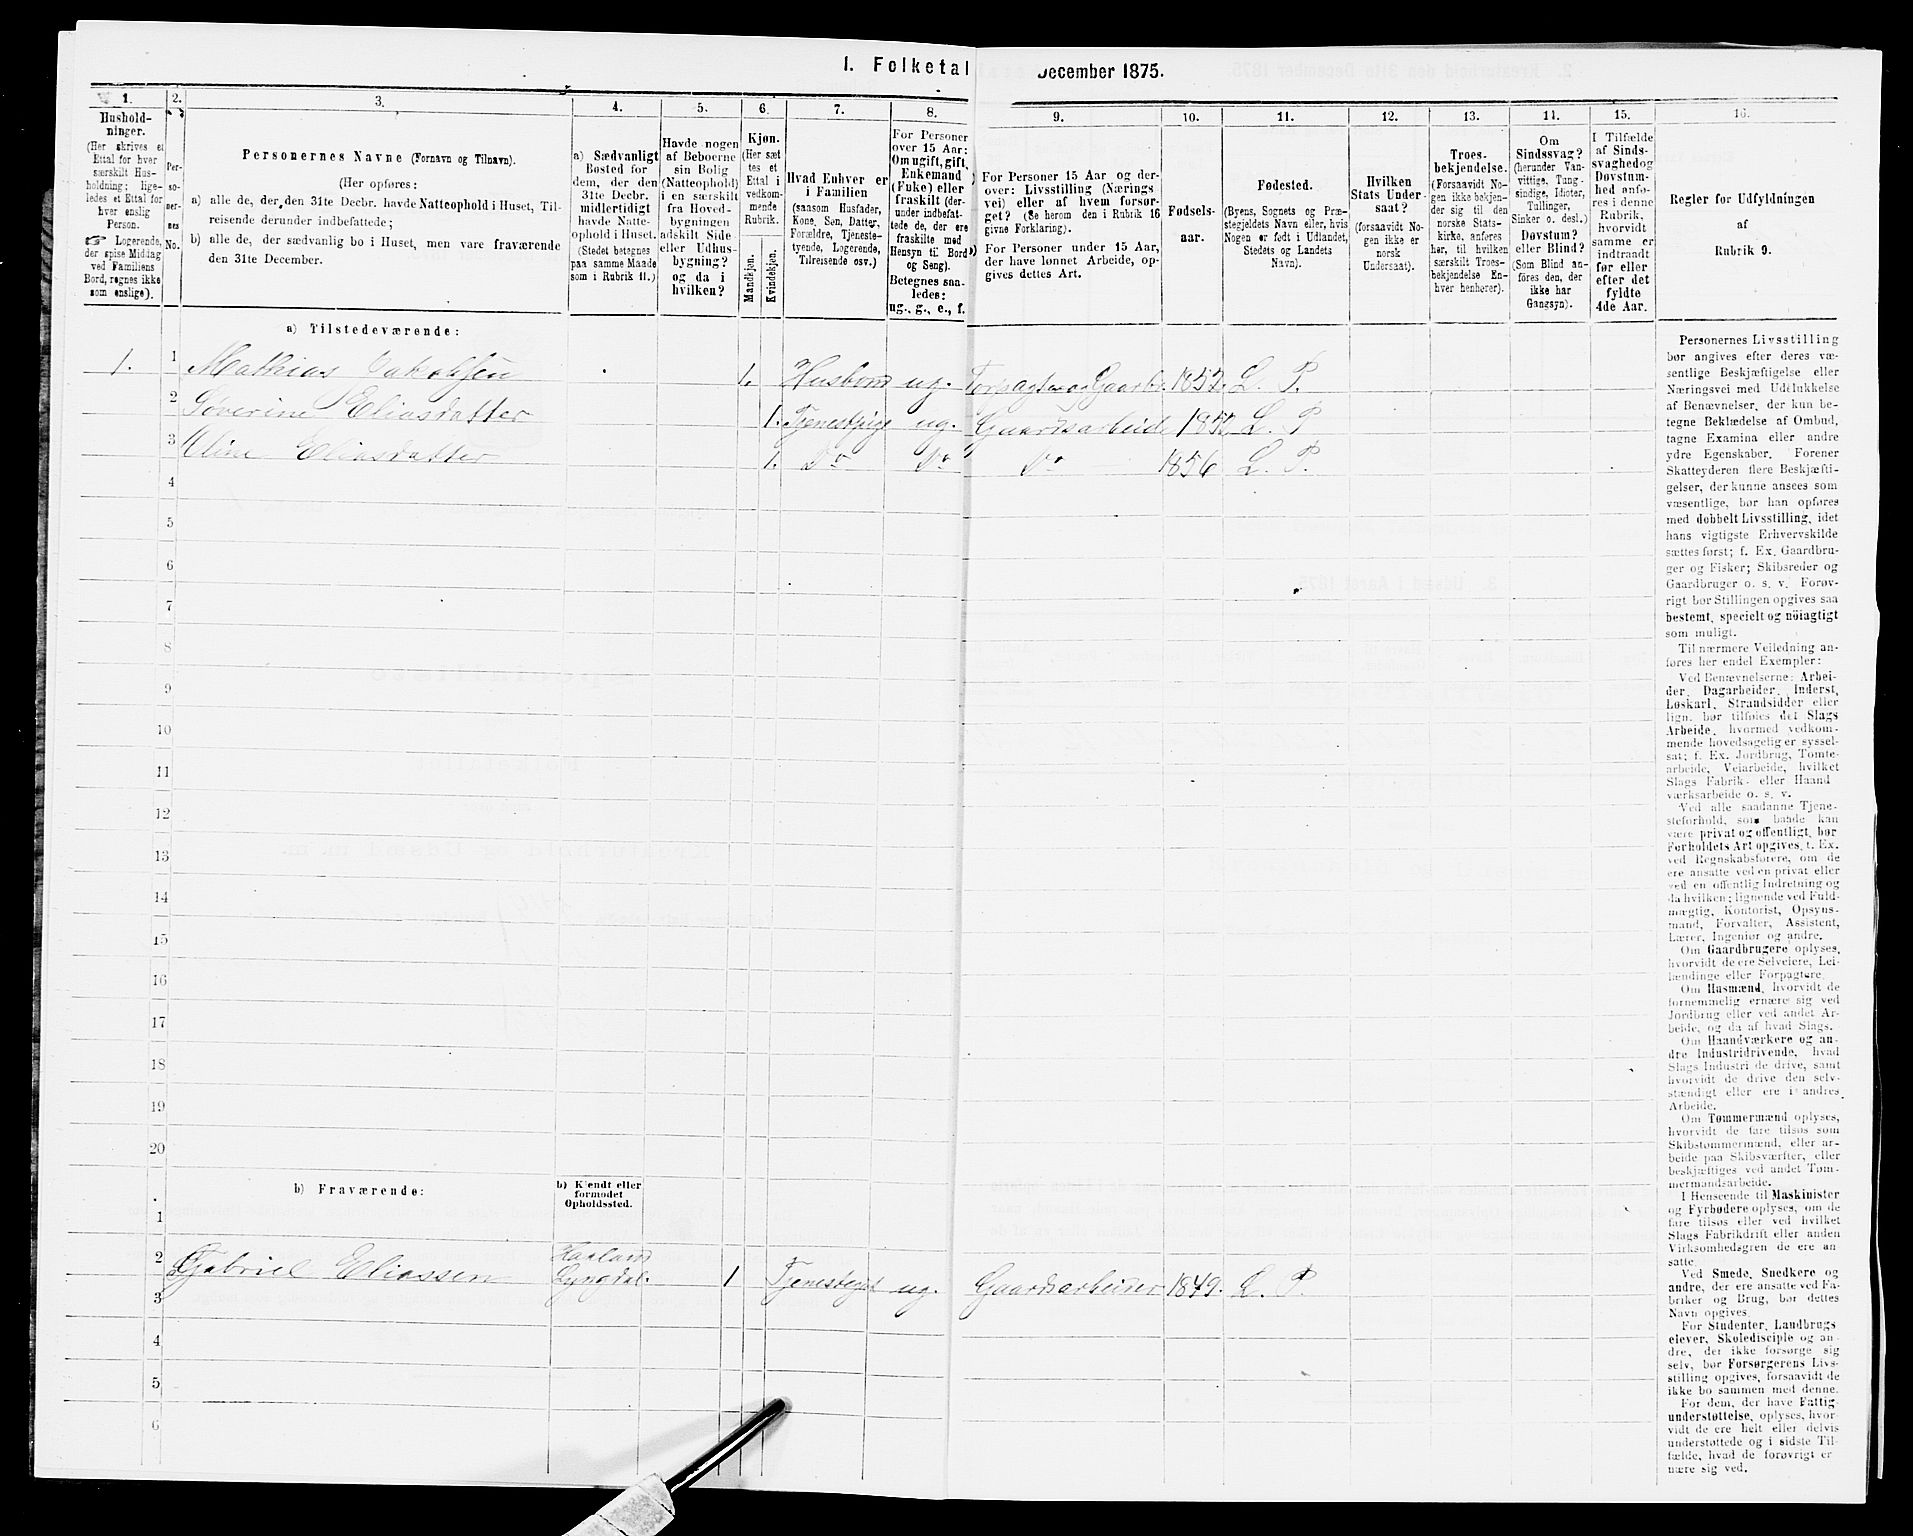 1. Folketal
December 1875.
1.
2.
3.
4.
5.
6.
7.
8.
9.
10.
11.
12.
13.
14.
15.
16.
Hushold-
ninger.
(Her skrives et
Ettal for hver
særskilt Hus-
holdning; lige-
ledes et Ettal for
hver enslig
Person.
☞ Logerende,
der spise Middag
ved Familiens
Bord, regnes ikke
som enslige).
Per-
so-
ner-
nes
No.
Personernes Navne (Fornavn og Tilnavn).
(Her opføres:
a) alle de, der den 31te Decbr. havde Natteophold i Huset, Til-
reisende derunder indbefattede;
b) alle de, der sædvanlig bo i Huset, men vare fraværende
den 31te December.
a) Sædvanligt
Bosted for
dem, der den
31te Decbr.
midlertidigt
havde Natte-
ophold i Huset.
(Stedet betegnes
paa samme Maade
som i Rubrik 11.)
Havde nogen
af Beboerne
sin Bolig
(Natteophold)
i en særskilt
fra Hoved-
bygningen
adskilt Side-
eller Udhus-
bygning?
og da i
hvilken?
Kjøn.
(Her sæt-
tes et
Ettal i
vedkom-
mende
Rubrik.
Mandkjøn.
Kvindekjøn.
Hvad Enhver er
i Familien
(saasom Husfader,
Kone, Søn, Datter,
Forældre, Tjeneste-
tyende, Logerende,
Tilreisende osv.)
For Personer
over 15 Aar:
Om ugift, gift,
Enkemand
(Enke) eller
fraskilt (der-
under indbefat-
tede de, der ere
fraskilte med
Hensyn til Bord
og Seng).
Betegnes saa-
ledes:
ug., g., e., f.
For Personer 15 Aar og der-
over: Livsstilling (Nærings
vei) eller af hvem forsør-
get? (Se herom den i Rubrik 16
givne Forklaring).
For Personer under 15 Aar,
der have lønnet Arbeide, op-
gives dettes Art.
Fødsels-
aar.
Fødested.
(Byens, Sognets og Præ-
stegjeldets Navn eller, hvis
Nogen er født i Udlandet,
Stedets og Landets
Navn).
Hvilken
Stats Under-
saat?
(forsaavidt No-
gen ikke er
norsk
Undersaat).
Troes-
bekjendelse.
(Forsaavidt No-
gen ikke bekjen-
der sig til den
norske Stats-
kirke, anføres
her, til hvilken
særskilt Troes-
bekjendelse En-
hver henhører).
Om
Sindssvag?
(herunder Van-
vittige, Tung-
sindige, Idioter,
Tullinger,
Sinker o. desl.)
Døvstum?
eller Blind?
(Som Blind an-
føres den, der
ikke har
Gangsyn).
I Tilfælde
af Sinds-
svaghed og
Døvstum-
hed anfø-
res i denne
Rubrik,
hvorvidt
samme er
indtraadt
før eller
efter det
fyldte
4de Aar.
Regler for Udfyldningen
af
Rubrik 9.
a) Tilstedeværende:
1. 1 Mathias Jakobsen 1. Husbond ug. Forpagter og Gaardbr. 1852. L. P.
2 Søverine Eliasdatter 1. Tjenestpige ug. Gaardsarbeide L. P.
3 Eliasdatter 1. Do Do Do 1856 L. P.
4
5
6
7
8
9
10
11
12
13
14
15
16
17
18
19
20
b) Fraværende:
b) Kjendt eller
formodet
Opholdssted.
1
2 Gabriel Eliassen Lyngdal. 1 ug. Gaardsarbeider 1849. L. P.
3
4
5
6
Personernes Livsstilling
bør angives efter deres væ-
sentlige Beskjæftigelse eller
Næringsvei med Udelukkelse
af Benævnelser, der kun be-
tegne Beklædelse af Ombud,
tagne Examina eller andre
ydre Egenskaber. Forener
Skatteyderen flere Beskjæfti-
gelser, der kunne ansees som
væsentlige, bør han opføres
med dobbelt Livsstilling, idet
hans vigtigste Erhvervskilde
sættes først; f. Ex. Gaardbru-
ger og Fisker; Skibsreder og
Gaardbruger o. s. v. Forøv-
rigt bør Stillingen opgives saa
bestemt, specielt og nöiagtigt
som muligt.
Til nærmere Veiledning an-
føres her endel Exempler:
Ved Benævnelserne: Arbei-
der, Dagarbeider, Inderst,
Løskarl, Strandsidder eller
lign. bør tilføies det Slags
Arbeide, hvormed vedkom-
mende hovedsagelig er syssel-
sat; f. Ex. Jordbrug, Tomte-
arbeide, Veiarbeide, hvilket
Slags Fabrik- eller Haand-
værksarbeide o. s. v.
Ved alle saadanne Tjene-
steforhold, som baade kan
være privat og offentligt, bør
Forholdets Art opgives, f. Ex.
ved Regnskabsførere, om de
ere ansatte ved en privat eller
ved en offentlig Indretning og
da hvilken; lignende ved Fuld-
mægtig, Kontorist, Opsyns-
mand, Forvalter, Assistent,
Lærer, Ingeniør og andre.
Om Gaardbrugere oplyses,
hvorvidt de ere Selveiere, Lei-
lændinge eller Forpagtere.
Om Husmænd, hvorvidt de
fornemmelig ernære sig ved
Jordbrug eller ved andet Ar-
beide, og da af hvad Slags.
Om Haandværkere og an-
dre Industridrivende, hvad
Slags Industri de drive, samt
hvorvidt de drive den selv-
stændigt eller ere i andres
Arbeide.
Om Tømmermænd oplyses,
hvorvidt de fare tilsøs som
Skibstømmermænd, eller ar-
beide paa Skibsværfter, eller
beskjæftiges ved andet Tøm-
mermandsarbeide.
I Henseende til Maskinister
og Fyrbødere oplyses, om de
fare tilsøs eller ved hvilket
Slags Fabrikdrift eller anden
Virksomhedsgren de ere an-
satte.
Ved Smede, Snedkere og
andre, der ere ansatte ved Fa-
briker og Brug, bør dettes
Navn opgives.
For Studenter, Landbrugs-
elever, Skoledisciple og an-
dre, der ikke forsørge sig
selv, bør Forsørgerens Livs-
stilling opgives, forsaavidt de
ikke bo sammen med denne.
For dem, der have Fattig-
understøttelse, oplyses, hvor-
vidt de ere helt eller delvis
understøttede og i sidste Til-
fælde, hvad de forøvrigt er-
nære sig ved.